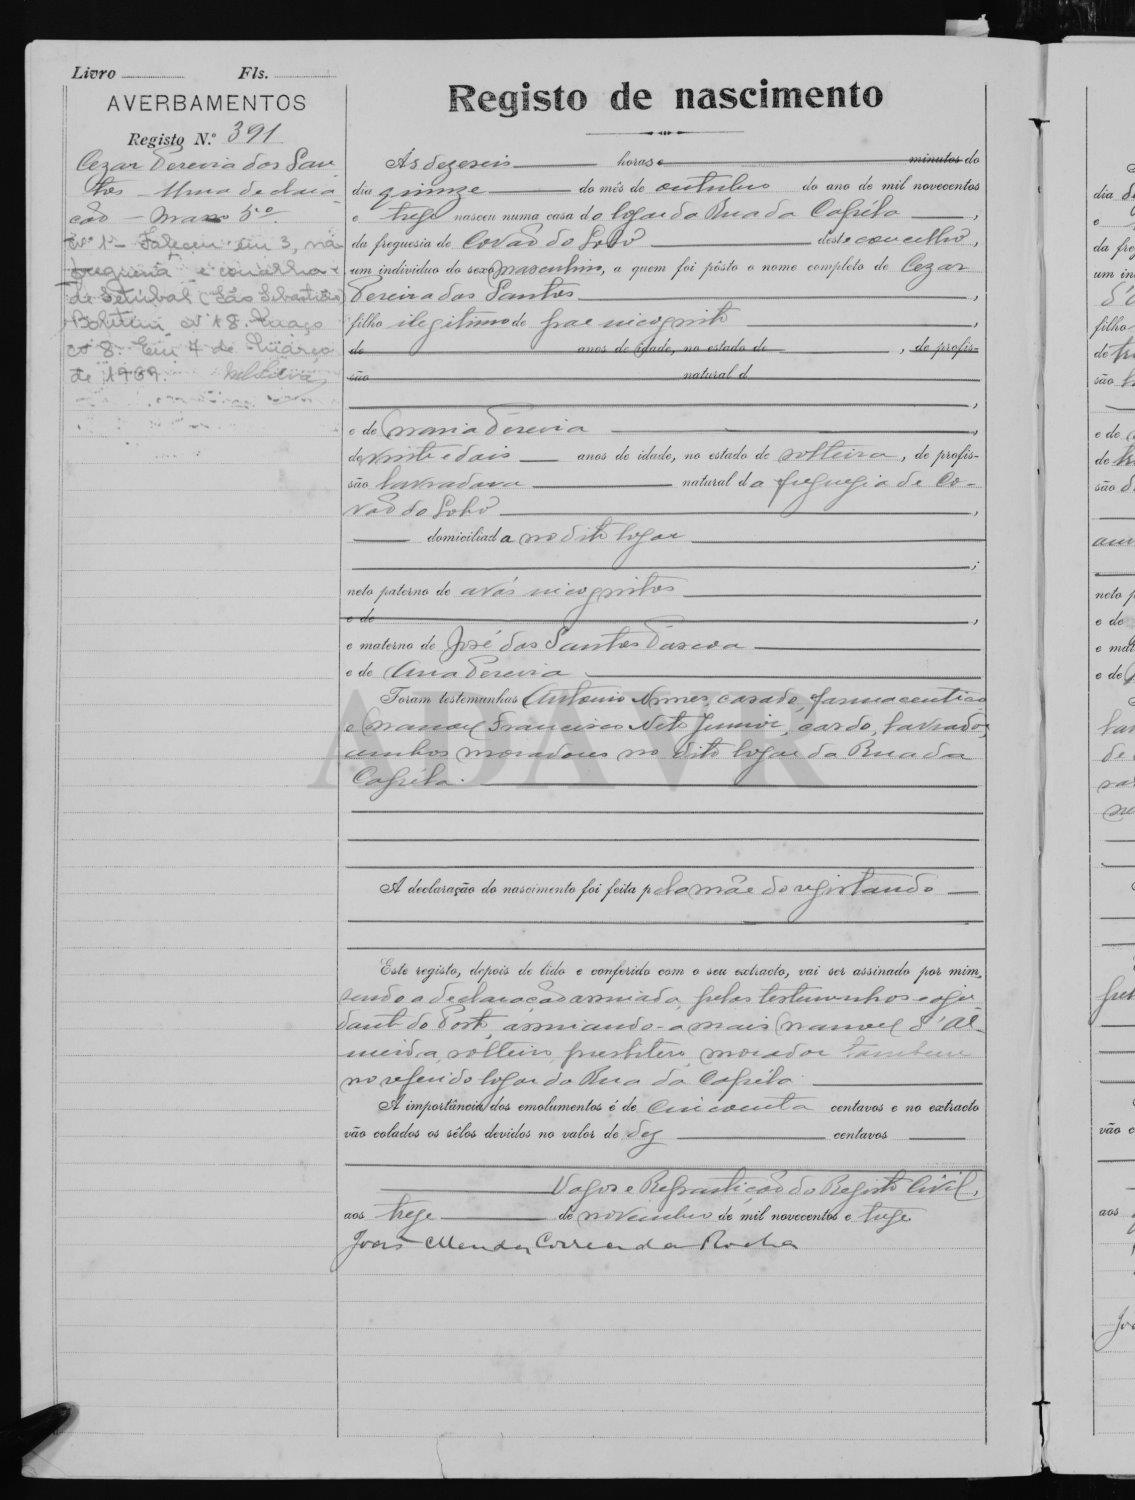 Livro Fls.
AVERBAMENTOS
Registo N.º 391
Cezar Pereira dos San-
tos - Uma declara-
ção - Maço 5º
Nº 1 - Faleceu em 3, na
freguesia e concelho
de Setúbal (São Sebastião)
Boletim nº 18. Maço
nº 8. Em 7 de Março
de 1969.
Registo de nascimento
Ás dezeseis horas e minutos do
dia quinze do mês de outubro do ano de mil novecentos
e treze nasceu numa casa do logar da Rua da Capéla,
da freguesia de Covão do Lobo deste concelho,
um indivíduo do sexo masculino, a quem foi pôsto o nome completo de Cezar
Pereira dos Santos,
filho ilegitimo de pae incognito,
de anos de idade, no estado de, de profis-
são natural d
,
e de Maria Pereira,
de vinte e dois anos de idade, no estado de solteira, de profis-
são lavradora natural da freguezia de Co-
vão do Lobo,
domiciliada no dito logar
;
neto paterno de avós incognitos
e de,
e materno de José dos Santos Pascoa
e de Ana Pereira
Foram testemunhas Antonio Nunes, casado, farmaceutico
e Manoel Francisco Neto Junior, casado, lavrador,
ambos moradores no dito logar da Rua da
Capéla.
ADAVR
A declaração do nascimento foi feita pela mãe do registando
Este registo, depois de lido e conferido com o seu extracto, vai ser assinado por mim,
sendo a declaração assinada pelas testemunhas e aju-
dante do Posto, assinando-a mais Manoel d'Al-
meida, solteiro, presbitero, morador tambem
no referido logar da Rua da Capéla.
A importância dos emolumentos é de cincoenta centavos e no extracto
vão colados os sêlos devidos no valor de dez centavos
Vagos e Repartição do Registo Civil,
aos treze de novembro de mil novecentos e treze
João Mendes Correia da Rocha